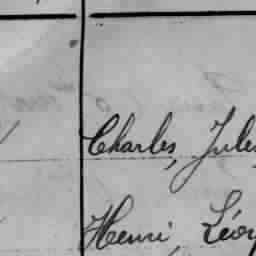 Charles, Jules
Henri, Léon